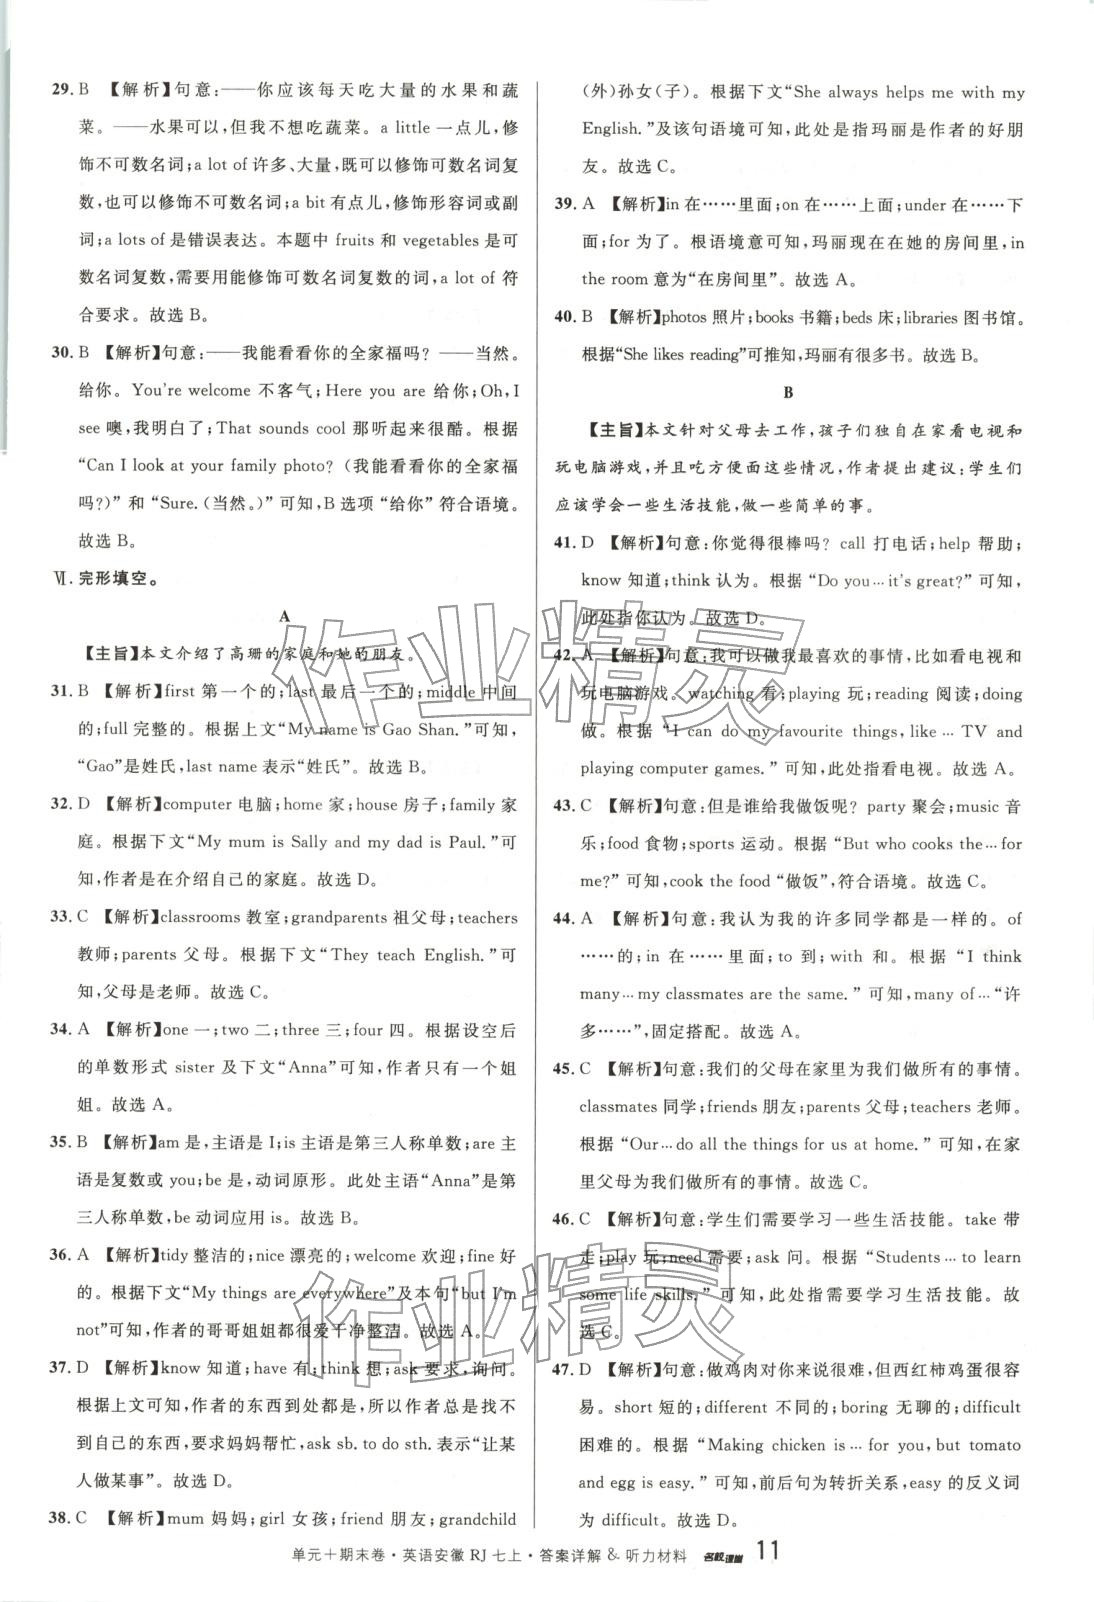 29. B 【解析】句意:——你应该每天吃大量的水果和蔬
菜。——水果可以,但我不想吃蔬菜。a little 一点儿,修
饰不可数名词;a lot of 许多、大量,既可以修饰可数名词复
数,也可以修饰不可数名词;a bit 有点儿,修饰形容词或副
词;a lots of 是错误表达。本题中 fruits 和 vegetables 是可
数名词复数,需要用能修饰可数名词复数的词,a lot of 符
合要求。故选 B。
30. B 【解析】句意:——我能看看你的全家福吗? ——当然。
给你。You're welcome 不客气;Here you are 给你;Oh,I
see 噢,我明白了;That sounds cool 那听起来很酷。根据
“Can I look at your family photo?(我能看看你的全家福
吗?)”和“Sure.(当然。)”可知,B 选项“给你”符合语境。
故选 B。
Ⅵ. 完形填空。
A
【主旨】本文介绍了高珊的家庭和她的朋友。
31. B 【解析】first 第一个的;last 最后一个的;middle 中间
的;full 完整的。根据上文“My name is Gao Shan.”可知,
“Gao”是姓氏,last name 表示“姓氏”。故选 B。
32. D 【解析】computer 电脑;home 家;house 房子;family 家
庭。根据下文“My mum is Sally and my dad is Paul.”可
知,作者是在介绍自己的家庭。故选 D。
33. C 【解析】classrooms 教室;grandparents 祖父母;teachers
教师;parents 父母。根据下文“They teach English.”可
知,父母是老师。故选 C。
34. A 【解析】one 一;two 二;three 三;four 四。根据设空后
的单数形式 sister 及下文“Anna”可知,作者只有一个姐
姐。故选 A。
35. B 【解析】am 是,主语是 I;is 主语是第三人称单数;are 主
语是复数或 you;be 是,动词原形。此处主语“Anna”是第
三人称单数,be 动词应用 is。故选 B。
36. A 【解析】tidy 整洁的;nice 漂亮的;welcome 欢迎;fine 好
的。根据下文“My things are everywhere”及本句“but I'm
not”可知,作者的哥哥姐姐都很爱干净整洁。故选 A。
37. D 【解析】know 知道;have 有;think 想;ask 要求,询问。
根据上文可知,作者的东西到处都是,所以作者总是找不
到自己的东西,要求妈妈帮忙,ask sb. to do sth. 表示“让某
人做某事”。故选 D。
38. C 【解析】mum 妈妈;girl 女孩;friend 朋友;grandchild
(外)孙女(子)。根据下文“She always helps me with my
English.”及该句语境可知,此处是指玛丽是作者的好朋
友。故选 C。
39. A 【解析】in 在……里面;on 在……上面;under 在……下
面;for 为了。根语境意可知,玛丽现在在她的房间里,in
the room 意为“在房间里”。故选 A。
40. B 【解析】photos 照片;books 书籍;beds 床;libraries 图书馆。
根据“She likes reading”可推知,玛丽有很多书。故选 B。
B
【主旨】本文针对父母去工作,孩子们独自在家看电视和
玩电脑游戏,并且吃方便面这些情况,作者提出建议:学生们
应该学会一些生活技能,做一些简单的事。
41. D 【解析】句意:你觉得很棒吗? call 打电话;help 帮助;
know 知道;think 认为。根据“Do you…it's great?”可知,
此处指你认为。故选 D。
42. A 【解析】句意:我可以做我最喜欢的事情,比如看电视和
玩电脑游戏。watching 看;playing 玩;reading 阅读;doing
做。根据“I can do my favourite things, like… TV and
playing computer games.”可知,此处指看电视。故选 A。
43. C 【解析】句意:但是谁给我做饭呢? party 聚会;music 音
乐;food 食物;sports 运动。根据“But who cooks the…for
me?”可知,cook the food“做饭”,符合语境。故选 C。
44. A 【解析】句意:我认为我的许多同学都是一样的。of
……的;in 在……里面;to 到;with 和。根据“I think
many…my classmates are the same.”可知,many of…“许
多……”,固定搭配。故选 A。
45. C 【解析】句意:我们的父母在家里为我们做所有的事情。
classmates 同学;friends 朋友;parents 父母;teachers 老师。
根据“Our…do all the things for us at home.”可知,在家
里父母为我们做所有的事情。故选 C。
46. C 【解析】句意:学生们需要学习一些生活技能。take 带
走;play 玩;need 需要;ask 问。根据“Students…to learn
some life skills.”可知,此处指需要学习生活技能。故
选 C。
47. D 【解析】句意:做鸡肉对你来说很难,但西红柿鸡蛋很容
易。short 短的;different 不同的;boring 无聊的;difficult
困难的。根据“Making chicken is…for you, but tomato
and egg is easy.”可知,前后句为转折关系,easy 的反义词
为 difficult。故选 D。
单元+期末卷·英语安徽 RJ 七上·答案详解 & 听力材料 名校课堂 11
作业精灵
作业精灵